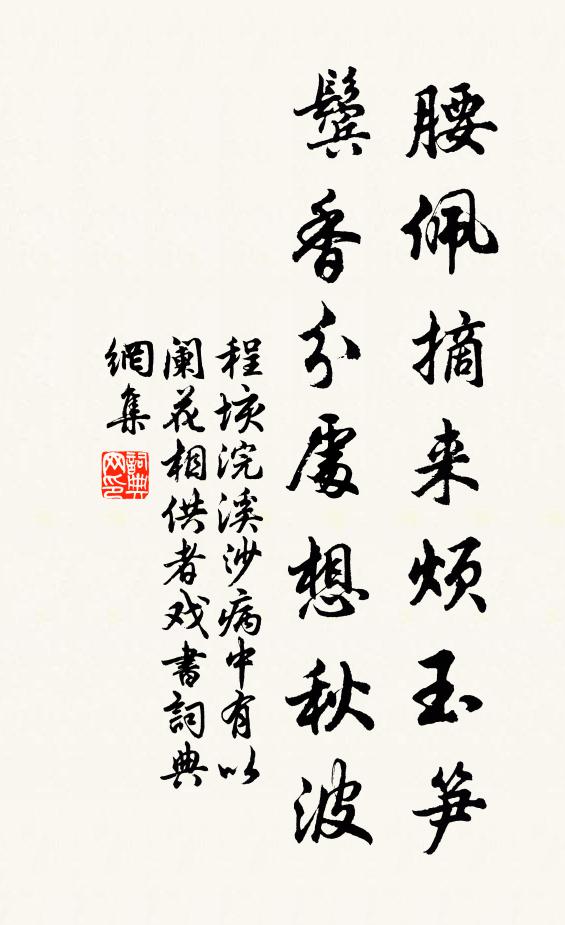 腰佩摘来烦玉笋
鬓香分處想秋波
程垓浣溪沙病中有以
阑花相供者戏書詞典
網集
詞典网印